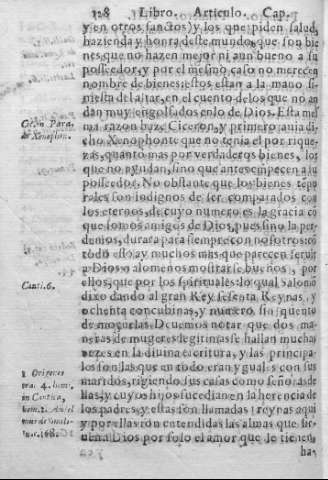 128 Libro. Articulo. Cap.
y en otros sanctos) y los que piden salud,
hazienda y honra deste mundo, que son bie
nes, que no hazen mejor ni aun bueno a su
posseedor, y por el mesmo caso no merecen
nombre de bienes: estos estan a la mano si-
niestra del altar, en el cuento de los que no an
dan muy engolfados en lo de Dios. Esta mes
ma razon haze Ciceron, y primero auia di-
cho Xenophonte que no tenia el por rique-
zas, quanto mas por verdaderos bienes, los
que no ayudan, sino que antes empecen a su
posseedor. No obstante que los bienes tépo
rales son indignos de ser comparados con
los eternos, de cuyo numero es la gracia có
que somos amigos de Dios, pues sino la per-
demos, durara para siempre con nosotros: có
todo esso ay muchos mas que parecen seruir
a Dios o alomenos mostrarse buenos, por
ellos, que por los spirituales: lo qual salomó
dixo dando al gran Rey sesenta Reynas, y
ochenta concubinas, y numero sin quento
de moçuelas. Deuemos notar que dos ma-
neras de mugeres legitimas se hallan muchas
vezes en la diuina escritura, y las principa-
les son las que en todo eran yguales con sus
maridos, rigiendo sus casas como señoras de
llas, y cuyos hijos sucedian en la herencia de
los padres, y estas son llamadas reynas aqui
y por ellas son entendidas las almas que sir-
uen a Dios por solo el amor que le tienen,
ha-
Xenophon.
Canti. 6.
1 Origenes
4. hom.
in Cantica,
hom. 2.